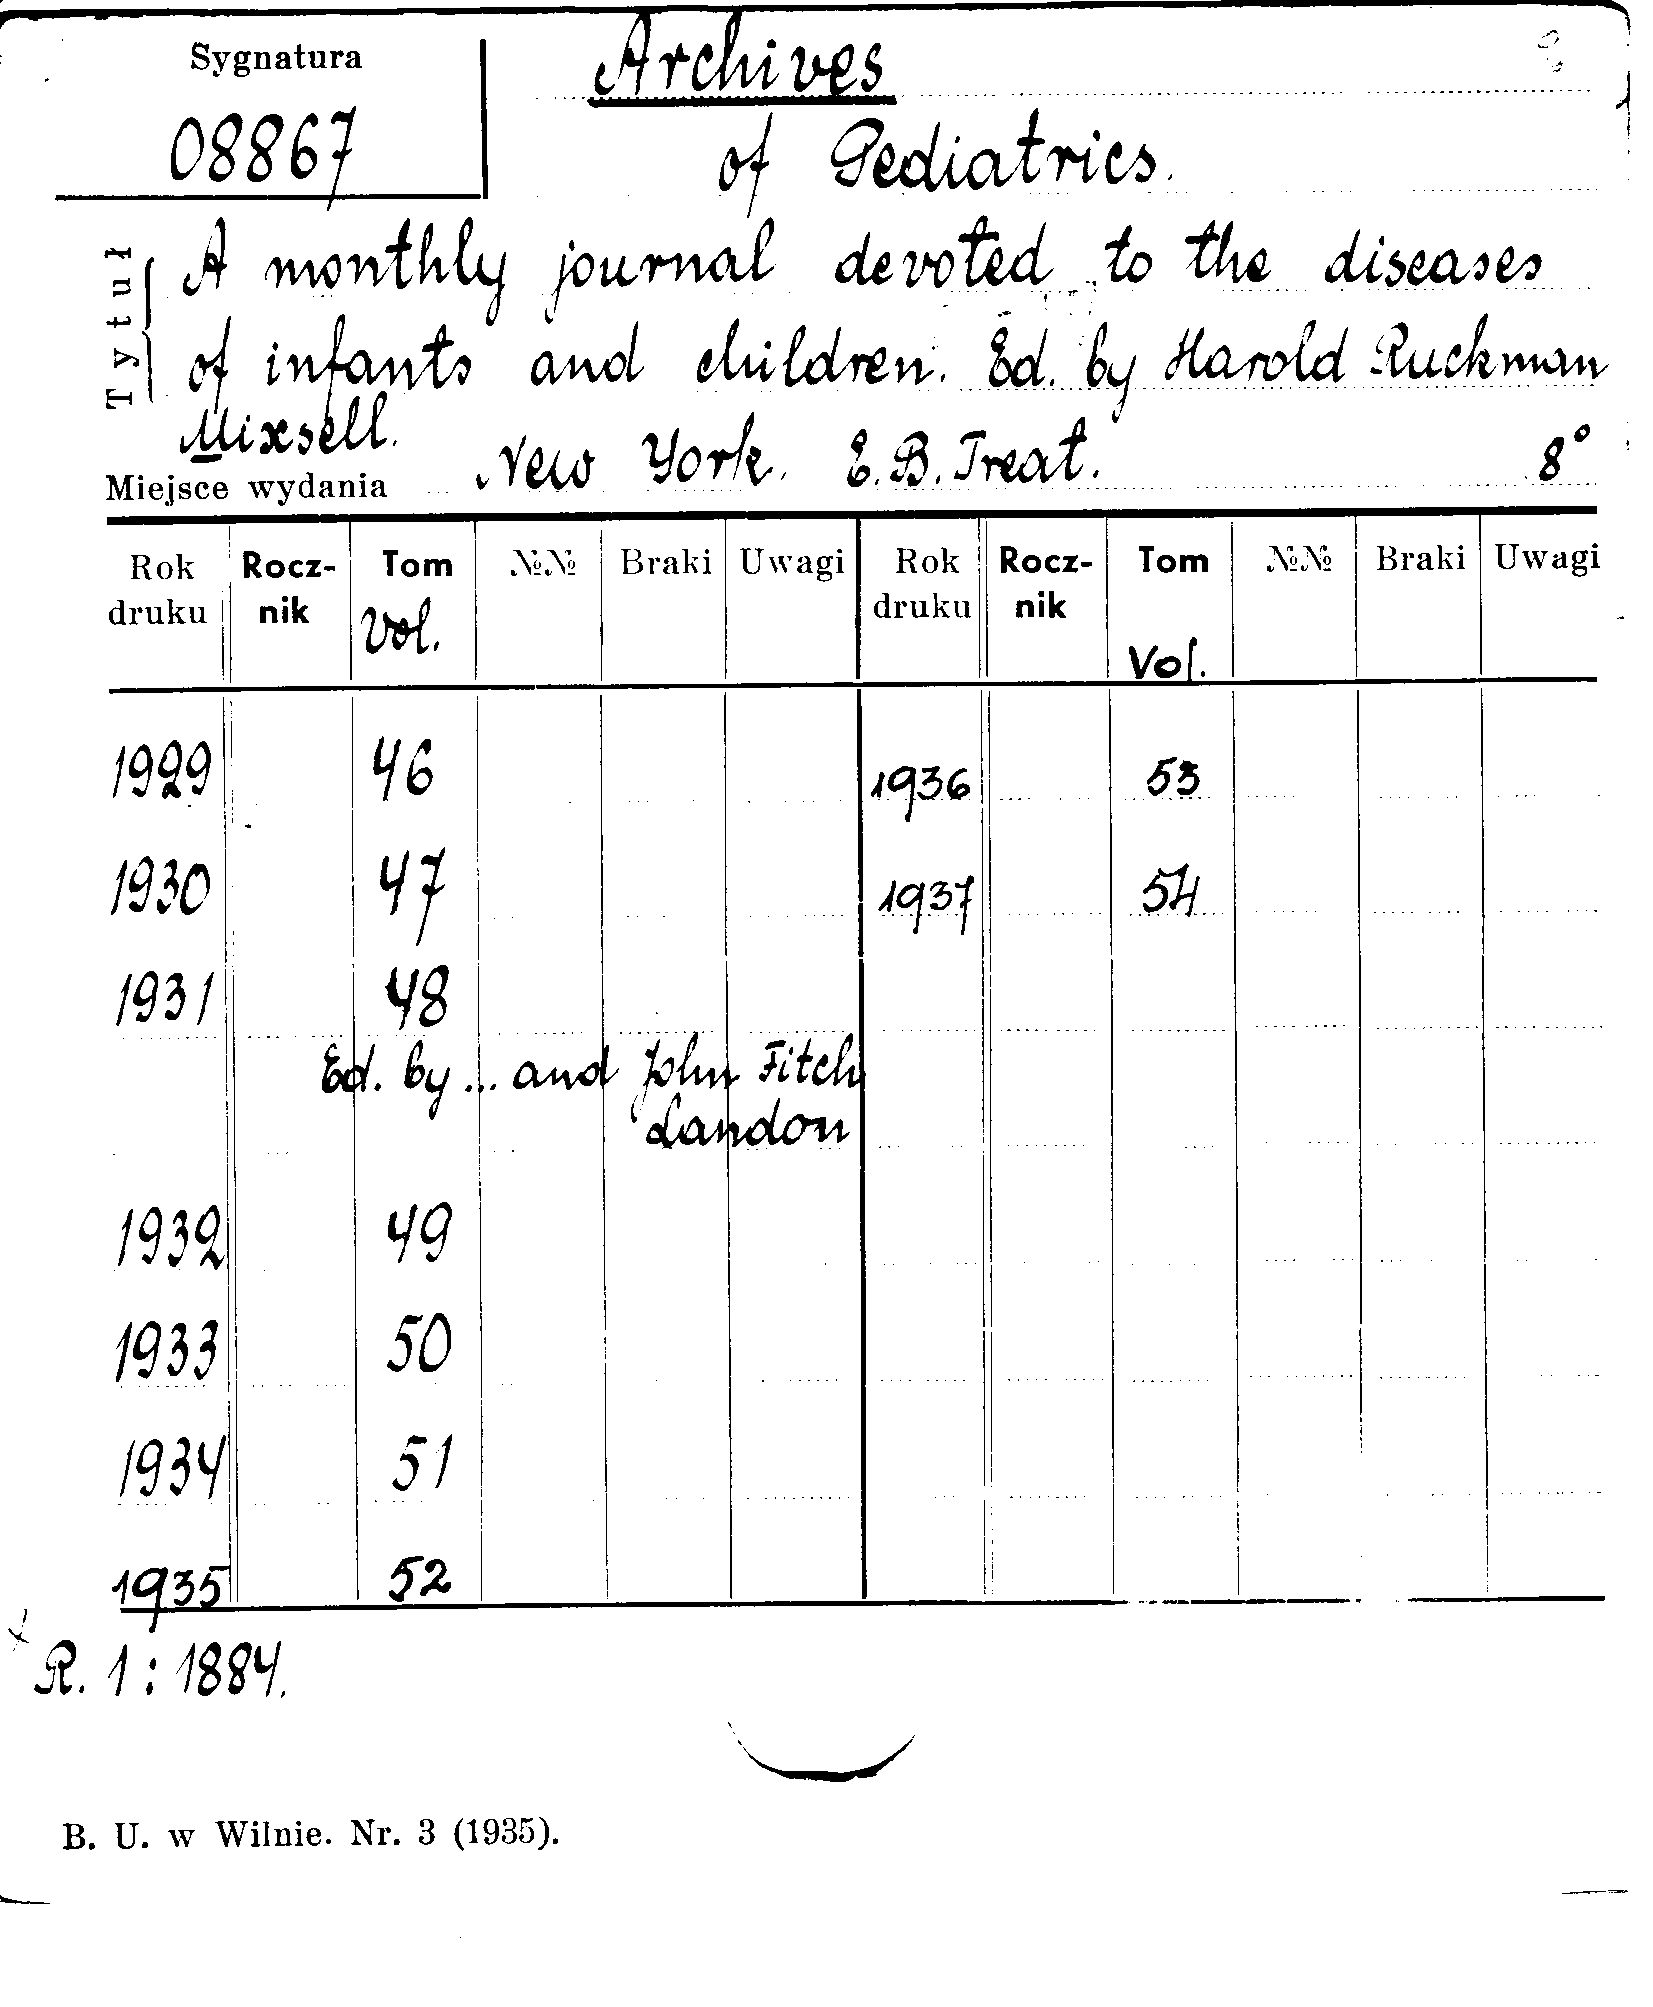 Sygnatura
08867
Archives
of Pediatrics.
Tytuł
A monthly journal devoted to the diseases
of infants and children. Ed. by Harold Ruckman
Mixsell.
Miejsce wydania New York. E.B. Treat. 8°
Rok druku Rocz-nik Tom №№ Braki Uwagi Rok druku Rocz-nik Tom №№ Braki Uwagi
Vol. Vol.
1929 46 1936 53
1930 47 1937 54
1931 48
Ed. by ... and John Fitch
Landon
1932 49
1933 50
1934 51
1935 52
R. 1 : 1884.
B. U. w Wilnie. Nr. 3 (1935).